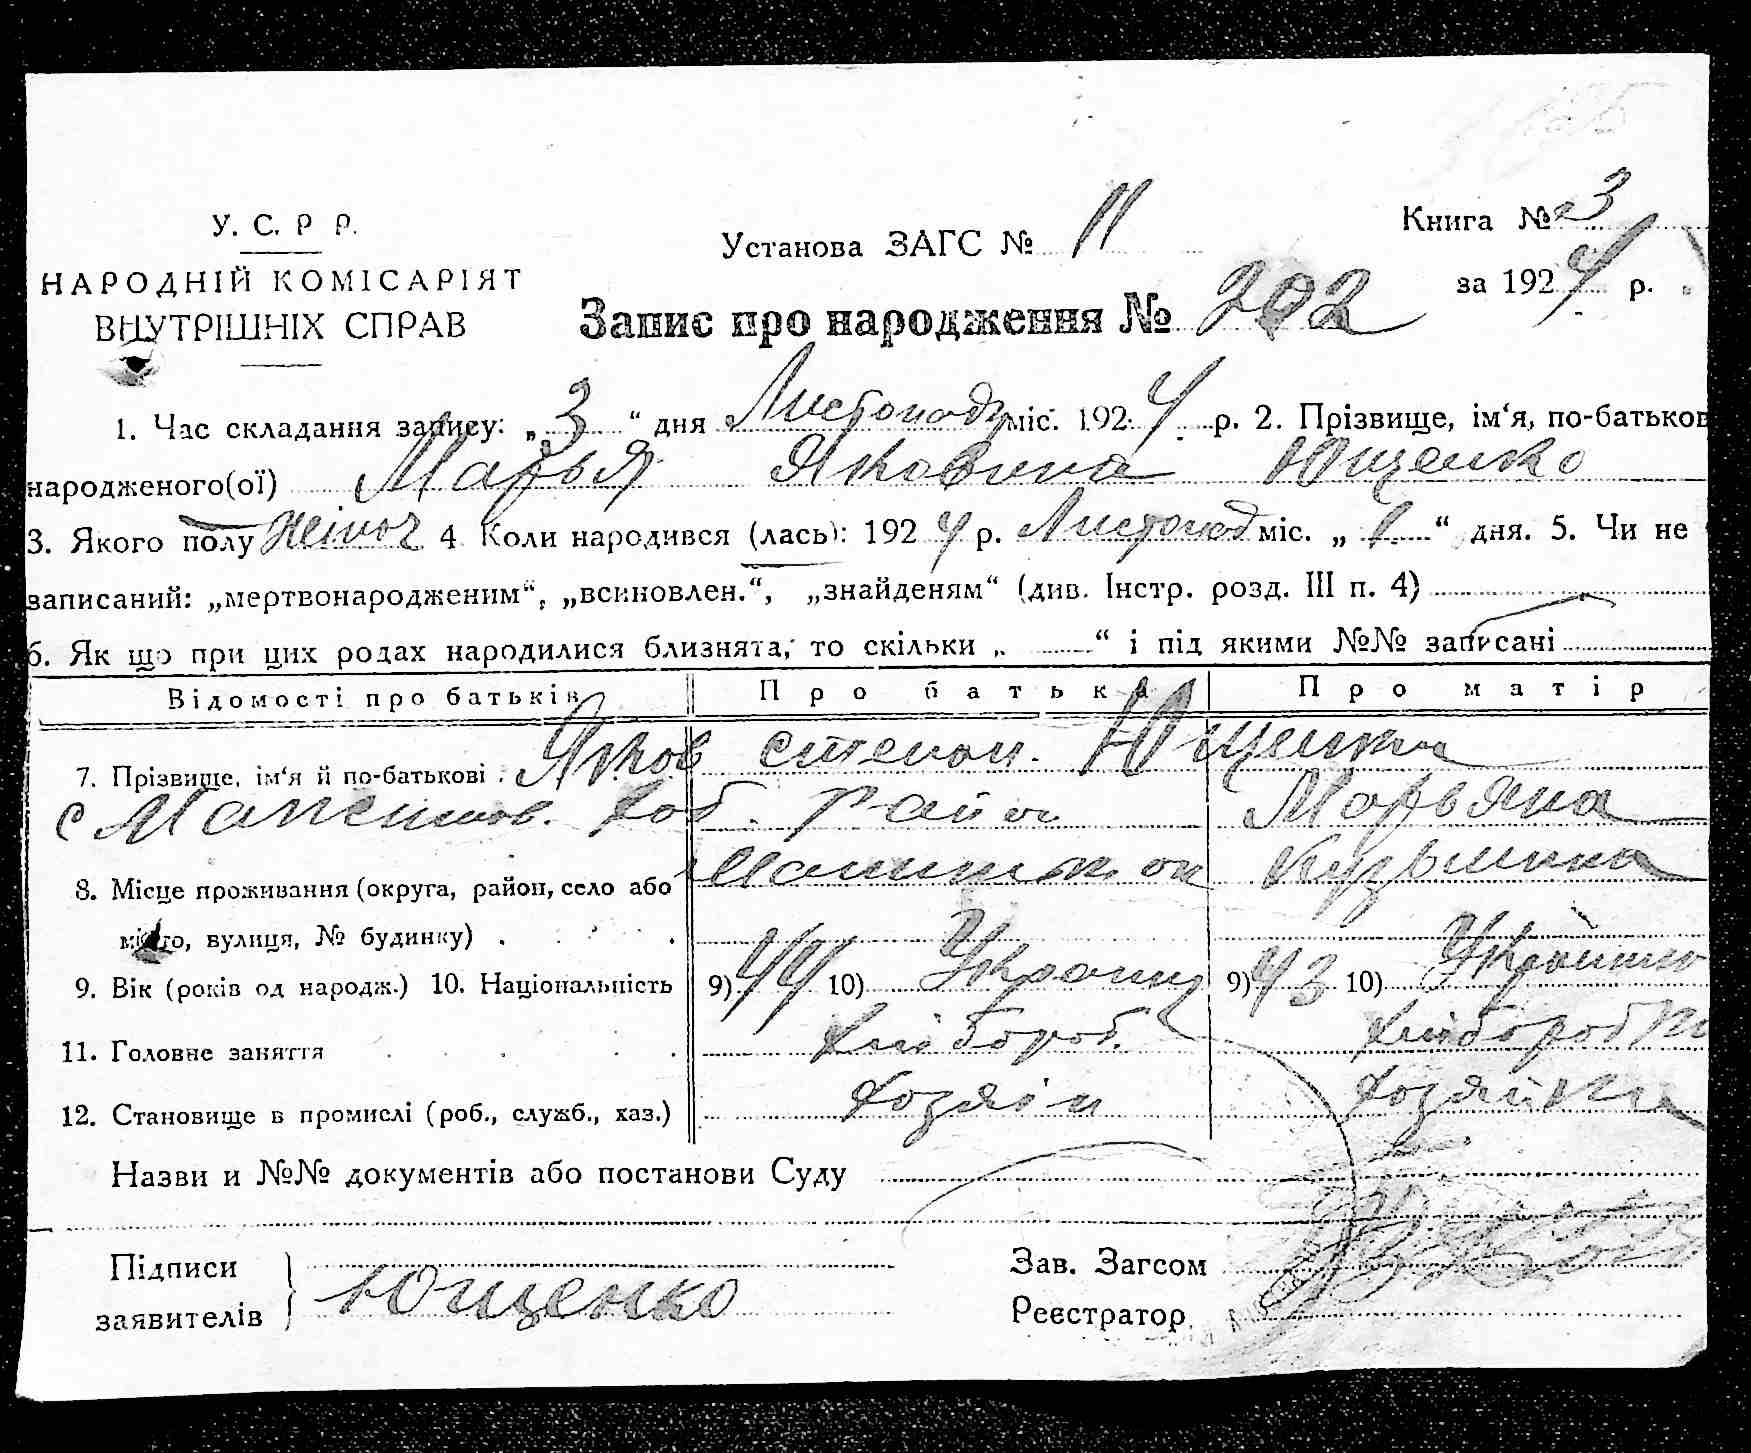 У. С. Р Р.
НАРОДНІЙ КОМІСАРІЯТ
ВНУТРІШНІХ СПРАВ
Установа ЗАГС № 11
Книга № 3
за 1924 р.
Запис про народження № 202
1. Час складання запису: „3“ дня Листопада міс. 1924 р. 2. Прізвище, ім‘я, по-батьков
народженого(ої) Марья Яковина Ющенко
3. Якого полу жіноч 4 Коли народився (лась): 1924 р. Листопад міс. „1“ дня. 5. Чи не
записаний: „мертвонародженим“, „всиновлен.“, „знайденям“ (див. Інстр. розд. III п. 4)
6. Як що при цих родах народилися близнята, то скільки „ “ і під якими №№ записані
Відомості про батьків Про батька Про матір
7. Прізвище, ім‘я й по-батькові . Яков Степан. Ющенко
с Район Марьяна
8. Місце проживання (округа, район, село або Кузьмина
місто, вулиця, № будинку) .
9. Вік (років од народж.) 10. Національність 9) 44 10) Украин 9) 43 10) Украинка
11. Головне заняття Хлібороб. Хлібороб
12. Становище в промислі (роб., служб., хаз.) Хозяін Хозяйка
Назви и №№ документів або постанови Суду
Підписи
заявителів Ющенко
Зав. Загсом
Реєстратор